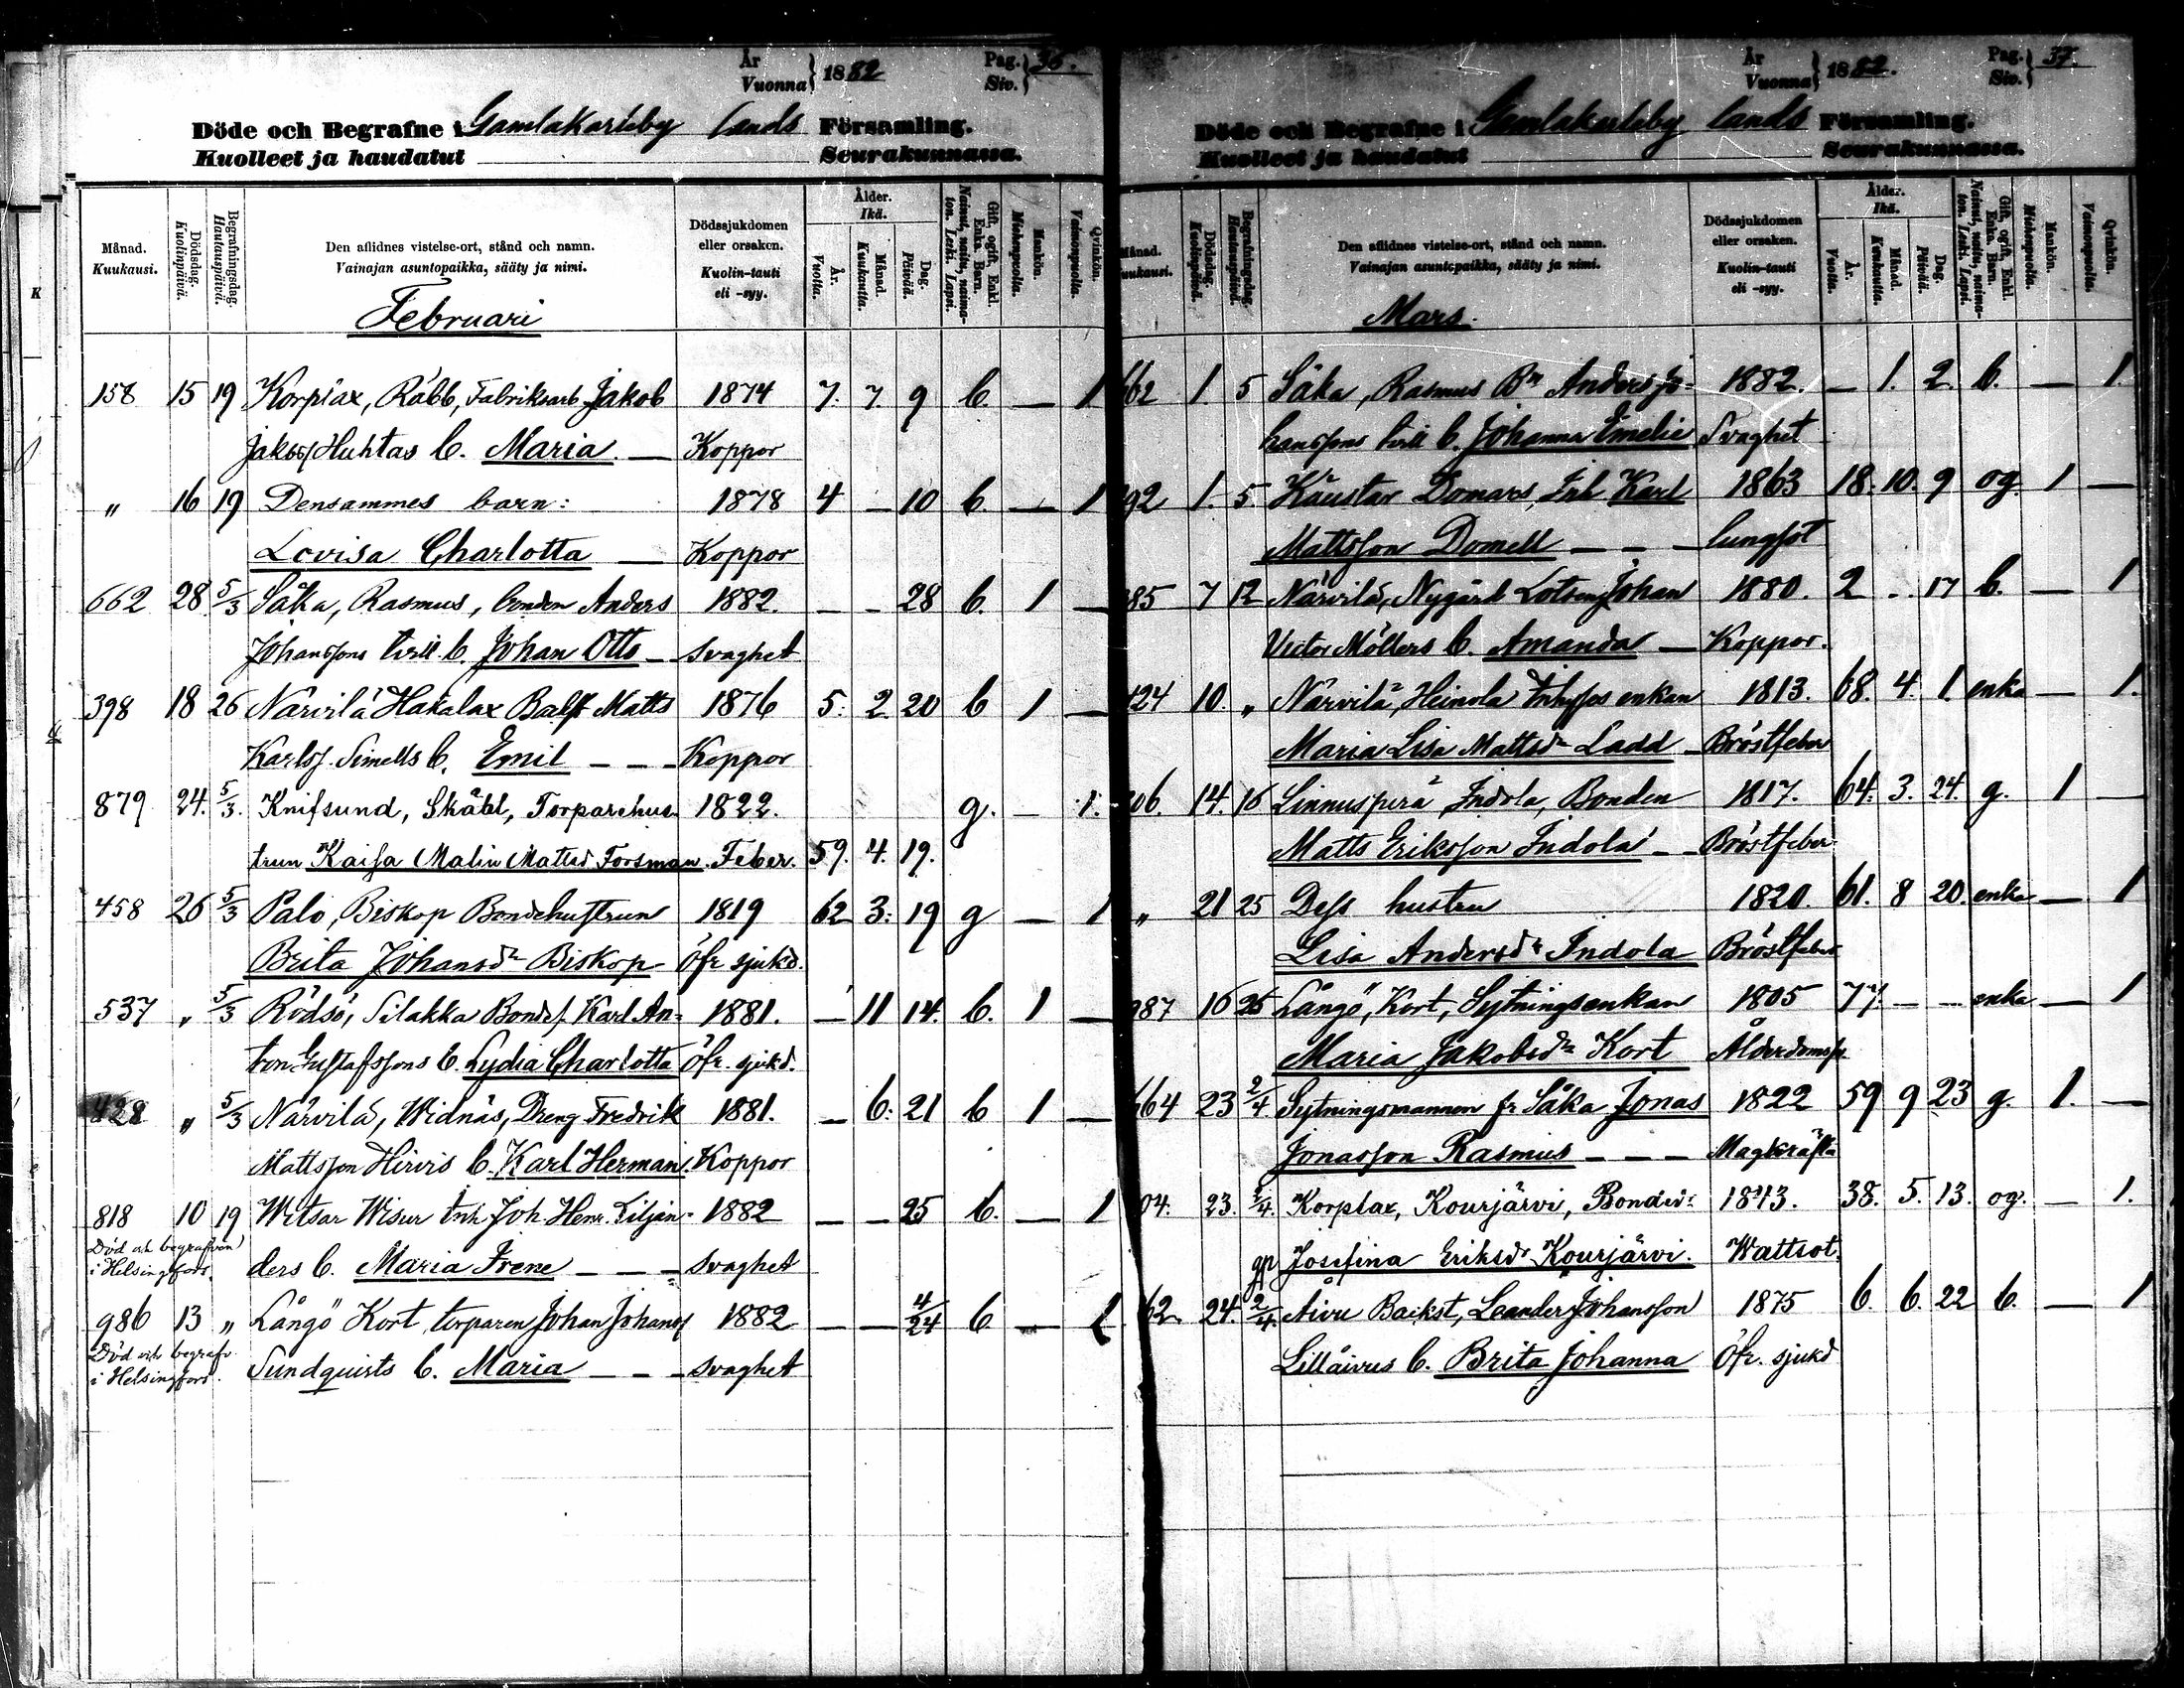 År
Vuonna } 1882
Pag.
Siv. } 36.
Döde och Begrafne i Gamlakarleby lands Församling.
Kuolleet ja haudatut Seurakunnassa.
Månad. Kuukausi.
Dödsdag. Kuolinpäivä.
Begrafningsdag. Hautauspäivä.
Den aflidnes vistelse-ort, stånd och namn.
Vainajan asuntopaikka, sääty ja nimi.
Dödssjukdomen eller orsaken.
Kuolin-tauti eli -syy.
Ålder. Ikä.
År. Vuotta.
Månad. Kuukautta.
Dag. Päivää.
Gift, ogift, Enkl. Enka. Barn.
Nainut, naitu, naimaton. Leski. Lapsi.
Mankön. Miehenpuolta.
Qvinkön. Vaimonpuolta.
Februari
158 15 19 Korplax, Räbb, Fabriksarb Jakob 1874 7. 7. 9 b. — 1
Jakobs/ Huhtas b. Maria. — Koppor
" 16 19 Densammes barn: 1878 4 — 10 b. — 1
Lovisa Charlotta — Koppor
662 28 5/3 Såka, Rasmus, bonden Anders 1882. — — 28 b. 1 —
Johanssons tvill. b. Johan Otto — Svaghet
398 18 26 Närvilä Hakalax Matts 1876 5: 2. 20 b 1 —
Karlss. Simells b. Emil — — — Koppor
879 24. 5/3. Knifsund, Skäbl, Torparehus- 1822. g. — 1.
trun Kaisa Malin Mattsd Forsman. Feber. 59. 4. 19.
458 26 5/3 Palo, Biskop Bondehustrun 1819 62 3: 19 g — 1
Brita Johansdr Biskop — Öfr sjukd.
537 " 5/3 Rödsö, Silakka Bondes. Karl An= 1881. — 11 14. b. 1 —
ton Gustafssons b. Lydia Charlotta Öfr. sjukd.
428 " 5/3 Närvilä, Widnäs, Dreng Fredrik 1881. — 6: 21 b 1 —
Mattsson Hirvis b. Karl Herman. Koppor
818 10 19 Witsar Wisur Inh Joh Henr. Liljan- 1882 — — 25 b. — 1
Död och begrafven
i Helsingfors.
ders b. Maria Irene — — — Svaghet
986 13 " Långö Kort, torparen Johan Johans/ 1882 — — 4/24 b — 1
Död och begrafv.
i Helsingfors.
Sundquists b. Maria — — — Svaghet
År
Vuonna } 1882.
Pag.
Siv. } 37.
Döde och Begrafne i Gamlakarleby lands Församling.
Kuolleet ja haudatut Seurakunnassa.
Månad. Kuukausi.
Dödsdag. Kuolinpäivä.
Begrafningsdag. Hautauspäivä.
Den aflidnes vistelse-ort, stånd och namn.
Vainajan asuntopaikka, sääty ja nimi.
Dödssjukdomen eller orsaken.
Kuolin-tauti eli -syy.
Ålder. Ikä.
År. Vuotta.
Månad. Kuukautta.
Dag. Päivää.
Gift, ogift, Enkl. Enka. Barn.
Nainut, naitu, naimaton. Leski. Lapsi.
Mankön. Miehenpuolta.
Qvinkön. Vaimonpuolta.
Mars.
662 1. 5 Såka, Rasmus Bn Anders Jo= 1882. — 1. 2. b. — 1.
hanssons tvill b. Johanna Emelie Svaghet
92 1. 5. Käustar Domars, Inh Karl 1863 18. 10. 9 og. 1 —
Mattsson Domell — — — Lungsot
85 7 12 Närvilä, Nygård Lotsen Johan 1880. 2 .. 17 b. — 1
Victor Möllers b. Amanda — Koppor.
424 10. " Närvilä, Heinola enkan 1813. 68. 4. 1. enka — 1.
Maria Lisa Mattsdr Ladd — Bröstfeber
06. 14. 16 Linnusperä Indola, Bonden 1817. 64. 3. 24. g. 1 —
Matts Eriksson Indola — Bröstfeber
" 21 25 Dess hustru 1820. 61. 8 20. enka — 1
Lisa Andersdr Indola Bröstfeber
987 16 26 Långö, Kort, Sytningsenkan 1805 77. — — enka — 1
Maria Jakobsdr Kort Ålderdomss.
664 23 2/4 Sytningsmannen fr Såka Jonas 1822 59 9 23 g. 1. —
Jonasson Rasmus — — — Magkräfta
04. 23. 2/4. Korplax, Kourjärvi, Bonded= 1843. 38. 5. 13. og. — 1.
Josefina Eriksdr Kourjärvi. Wattsot.
62. 24. 2/4. Aivu Backst, Leander Johansson 1875 6. 6. 22 b. — 1
Lillåivus b. Brita Johanna Öfr. sjukd